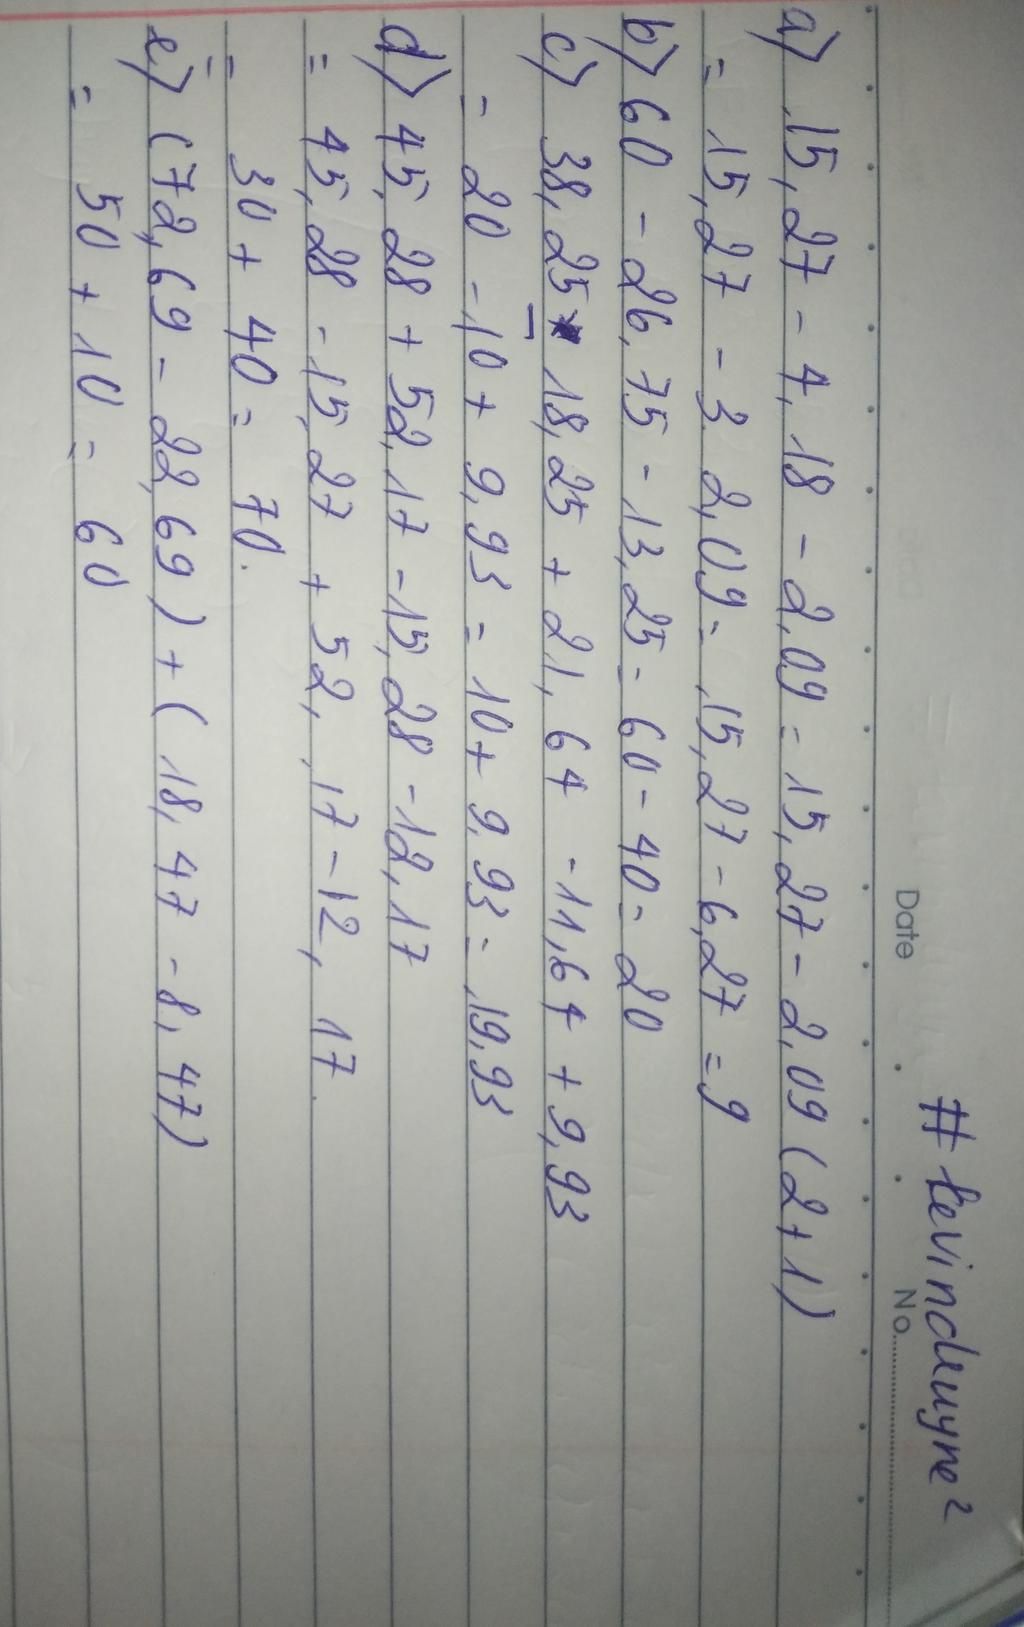 # kevindeuyne²
Date No.
a) 15,27 - 4,18 - 2,09 = 15,27 - 2,09 (2+1)
= 15,27 - 3 2,09 = 15,27 - 6,27 = 9
b) 60 - 26,75 - 13,25 = 60 - 40 = 20
c) 38,25 - 18,25 + 21,64 - 11,64 + 9,93
= 20 - 10 + 9,93 = 10 + 9,93 = 19,93
d) 45,28 + 52,17 - 15,28 - 12,17
= 45,28 - 15,27 + 52,17 - 12,17.
= 30 + 40 = 70.
e) (72,69 - 22,69) + (18,47 - 8,47)
= 50 + 10 = 60